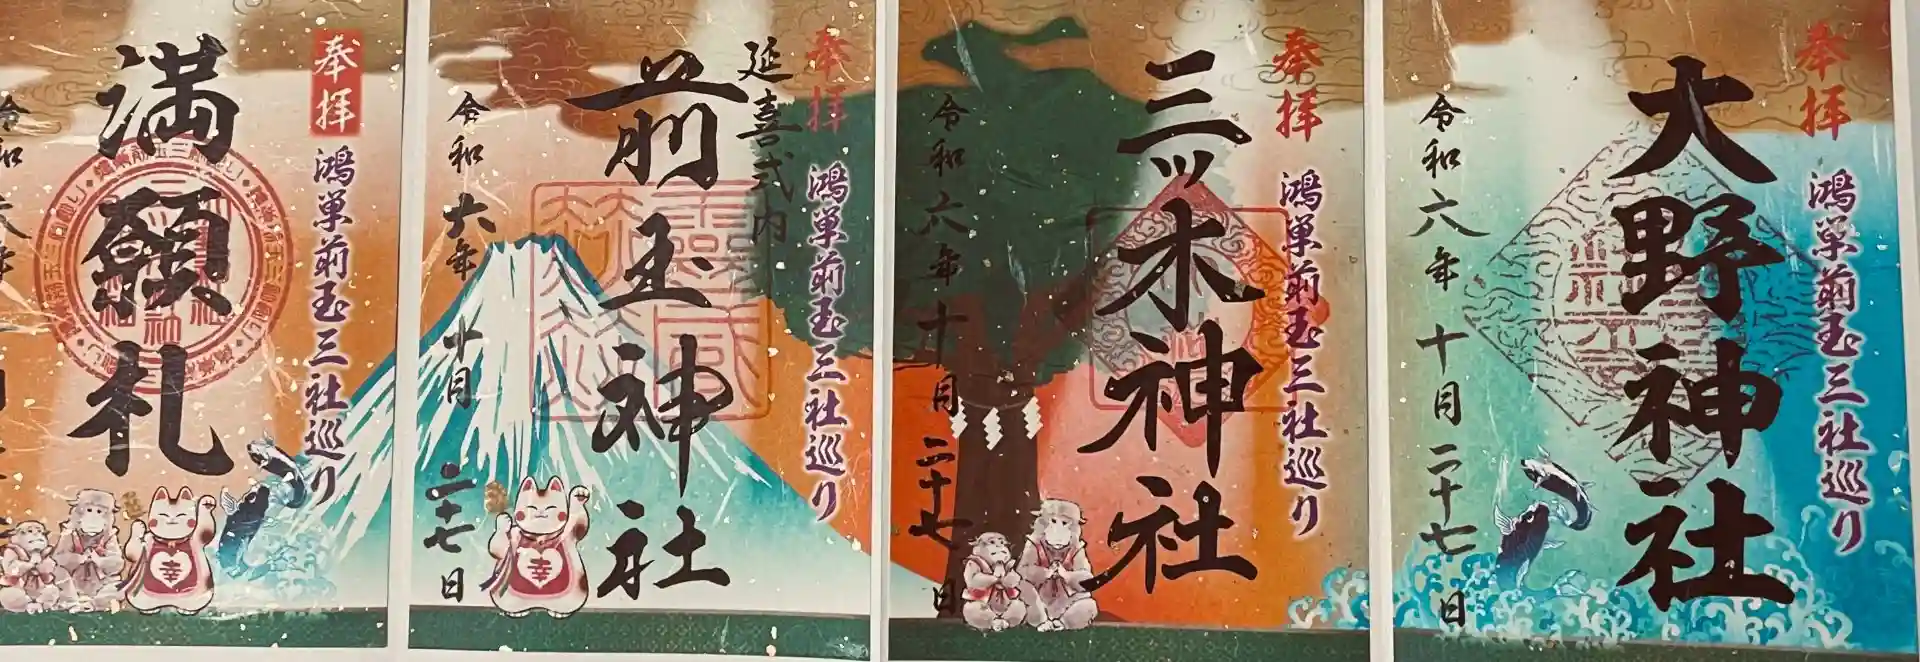 奉拝
鴻巣前玉三社巡り
大野神社
令和六年 十月 二十七日
奉拝
鴻巣前玉三社巡り
三ッ木神社
令和六年 十月 二十七日
奉拝
鴻巣前玉三社巡り
延喜式内
前玉神社
令和六年 十月 二十七日
幸
奉拝
鴻巣前玉三社巡り
満願札
令和六年
幸